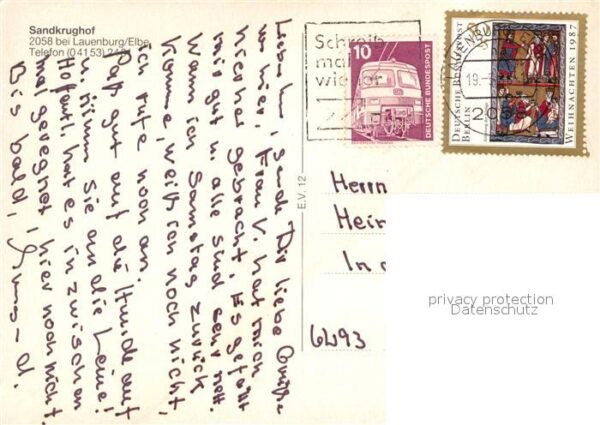 Sandkrughof
2058 bei Lauenburg/Elbe
Telefon (04153) 24
Schreib
mal
wieder
10
DEUTSCHE BUNDESPOST
DEUTSCHE BUNDESPOST
BERLIN
WEIHNACHTEN 1987
LAUENBURG
19.
205
E.V. 12
Herrn
Hein
In d
6493
privacy protection
Datenschutz
Liebe sende Dir liebe Grüße
von hier, Frau V. hat mich
hierher gebracht. Es gefällt
mir gut u. alle sind sehr nett.
Wann ich Samstag zurück
komme, weiß ich noch nicht,
ich rufe noch an.
Paß gut auf die Hunde auf
u. nimm sie an die Leine!
Hoffentl. hat es inzwischen
mal geregnet, hier noch nicht.
Bis bald,